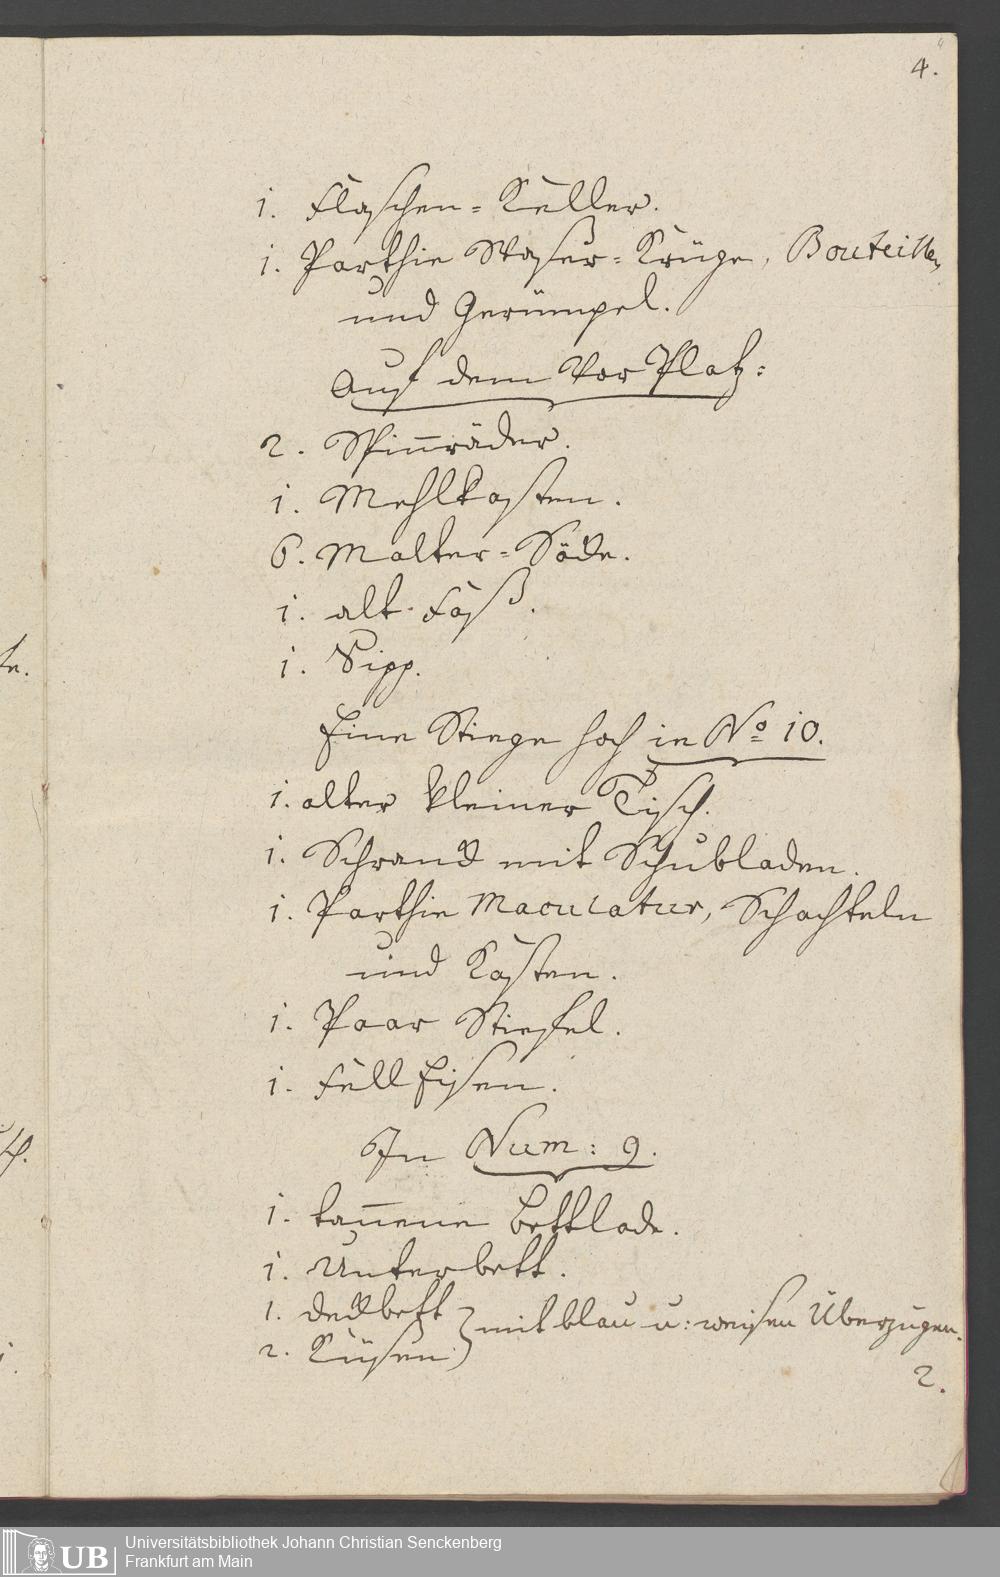 4.
1. Flaschen-Keller.
1. Parthie Waßer-Krüge, Bouteillen
und Gerümpel.
Auf dem Vor Platz:
2. Spinnräder.
1. Mehlkasten.
6. Malter-Säcke.
1. alt Faß.
1. Sipp.
Eine Stiege hoch in No 10.
1. alter kleiner Tisch.
1. Schranck mit Schubladen.
1. Parthie Maculatur, Schachteln
und Kästen.
1. Paar Stiefel.
1. Fell Eisen.
In Num: 9.
1. tannene Bettlade.
1. Unterbett.
1. Deckbett
2. Küsen } mit blau u: weisen Überzügen.
2.
Universitätsbibliothek Johann Christian Senckenberg
Frankfurt am Main
UB